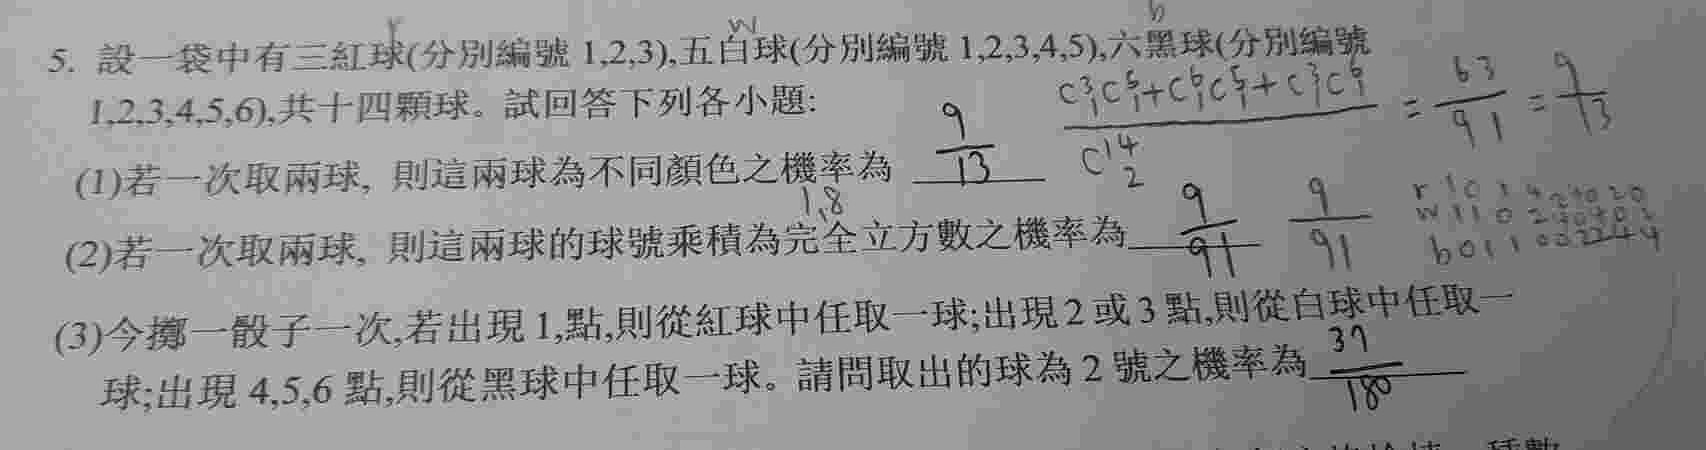 r w b
5. 設一袋中有三紅球(分別編號 1,2,3),五白球(分別編號 1,2,3,4,5),六黑球(分別編號
1,2,3,4,5,6),共十四顆球。試回答下列各小題:
C³₁C⁵₁+C⁶₁C⁵₁+C³₁C⁶₁ / C¹⁴₂ = 63/91 = 9/13
(1)若一次取兩球, 則這兩球為不同顏色之機率為 9/13
1,8
(2)若一次取兩球, 則這兩球的球號乘積為完全立方數之機率為 9/91 9/91
(3)今擲一骰子一次,若出現 1,點,則從紅球中任取一球;出現 2 或 3 點,則從白球中任取一
球;出現 4,5,6 點,則從黑球中任取一球。請問取出的球為 2 號之機率為 37/180